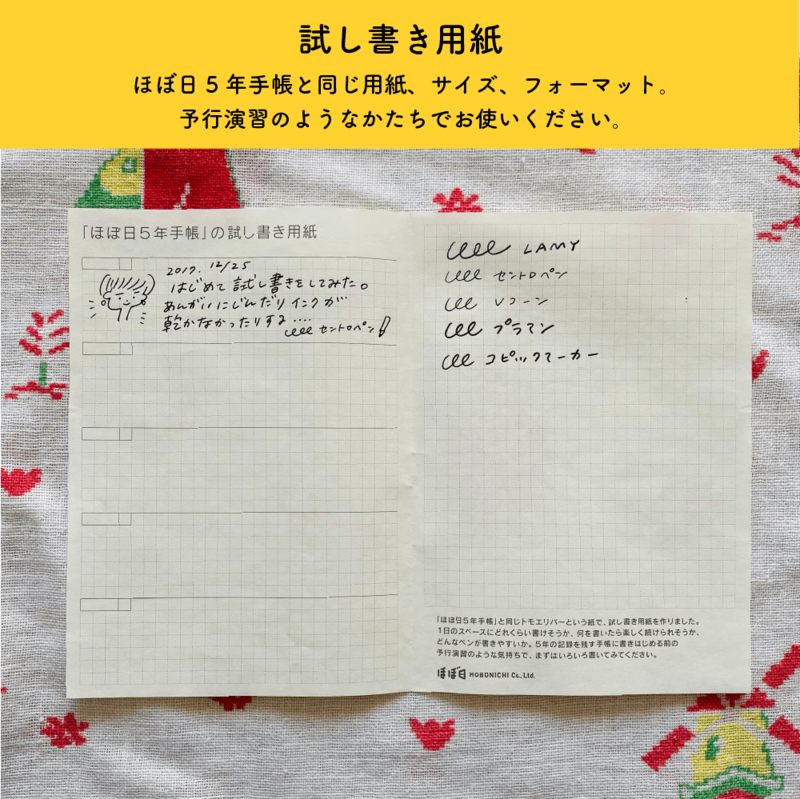 試し書き用紙
ほぼ日5年手帳と同じ用紙、サイズ、フォーマット。
予行演習のようなかたちでお使いください。
「ほぼ日5年手帳」の試し書き用紙
2017. 12/25
はじめて試し書きをしてみた。
あんがいにじんだりインクが
乾かなかったりする....
セントロペン
LAMY
セントロペン
Vコーン
プラマン
コピックマーカー
「ほぼ日5年手帳」と同じトモエリバーという紙で、試し書き用紙を作りました。
1日のスペースにどれくらい書けそうか、何を書いたら楽しく続けられそうか、
どんなペンが書きやすいか。5年の記録を残す手帳に書きはじめる前の
予行演習のような気持ちで、まずはいろいろ書いてみてください。
ほぼ日 HOBONICHI Co., Ltd.